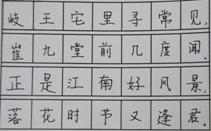 岐王宅里寻常见,
崔九堂前几度闻.
正是江南好风景,
落花时节又逢君.